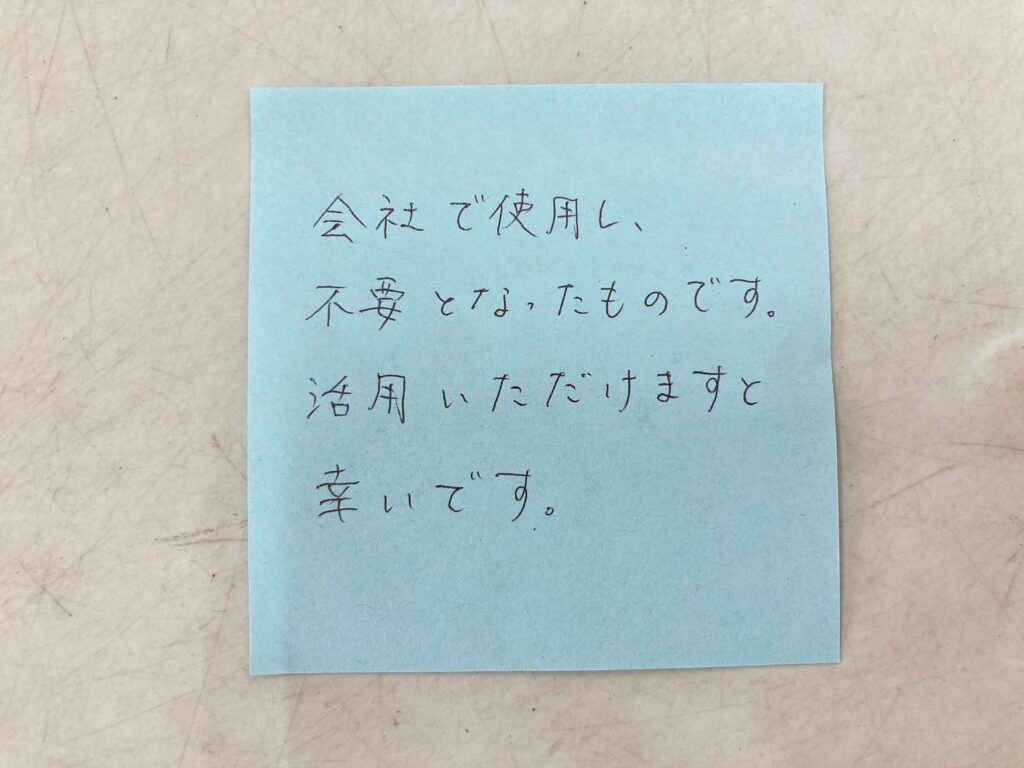 会社で使用し、
不要となったものです。
活用いただけますと
幸いです。